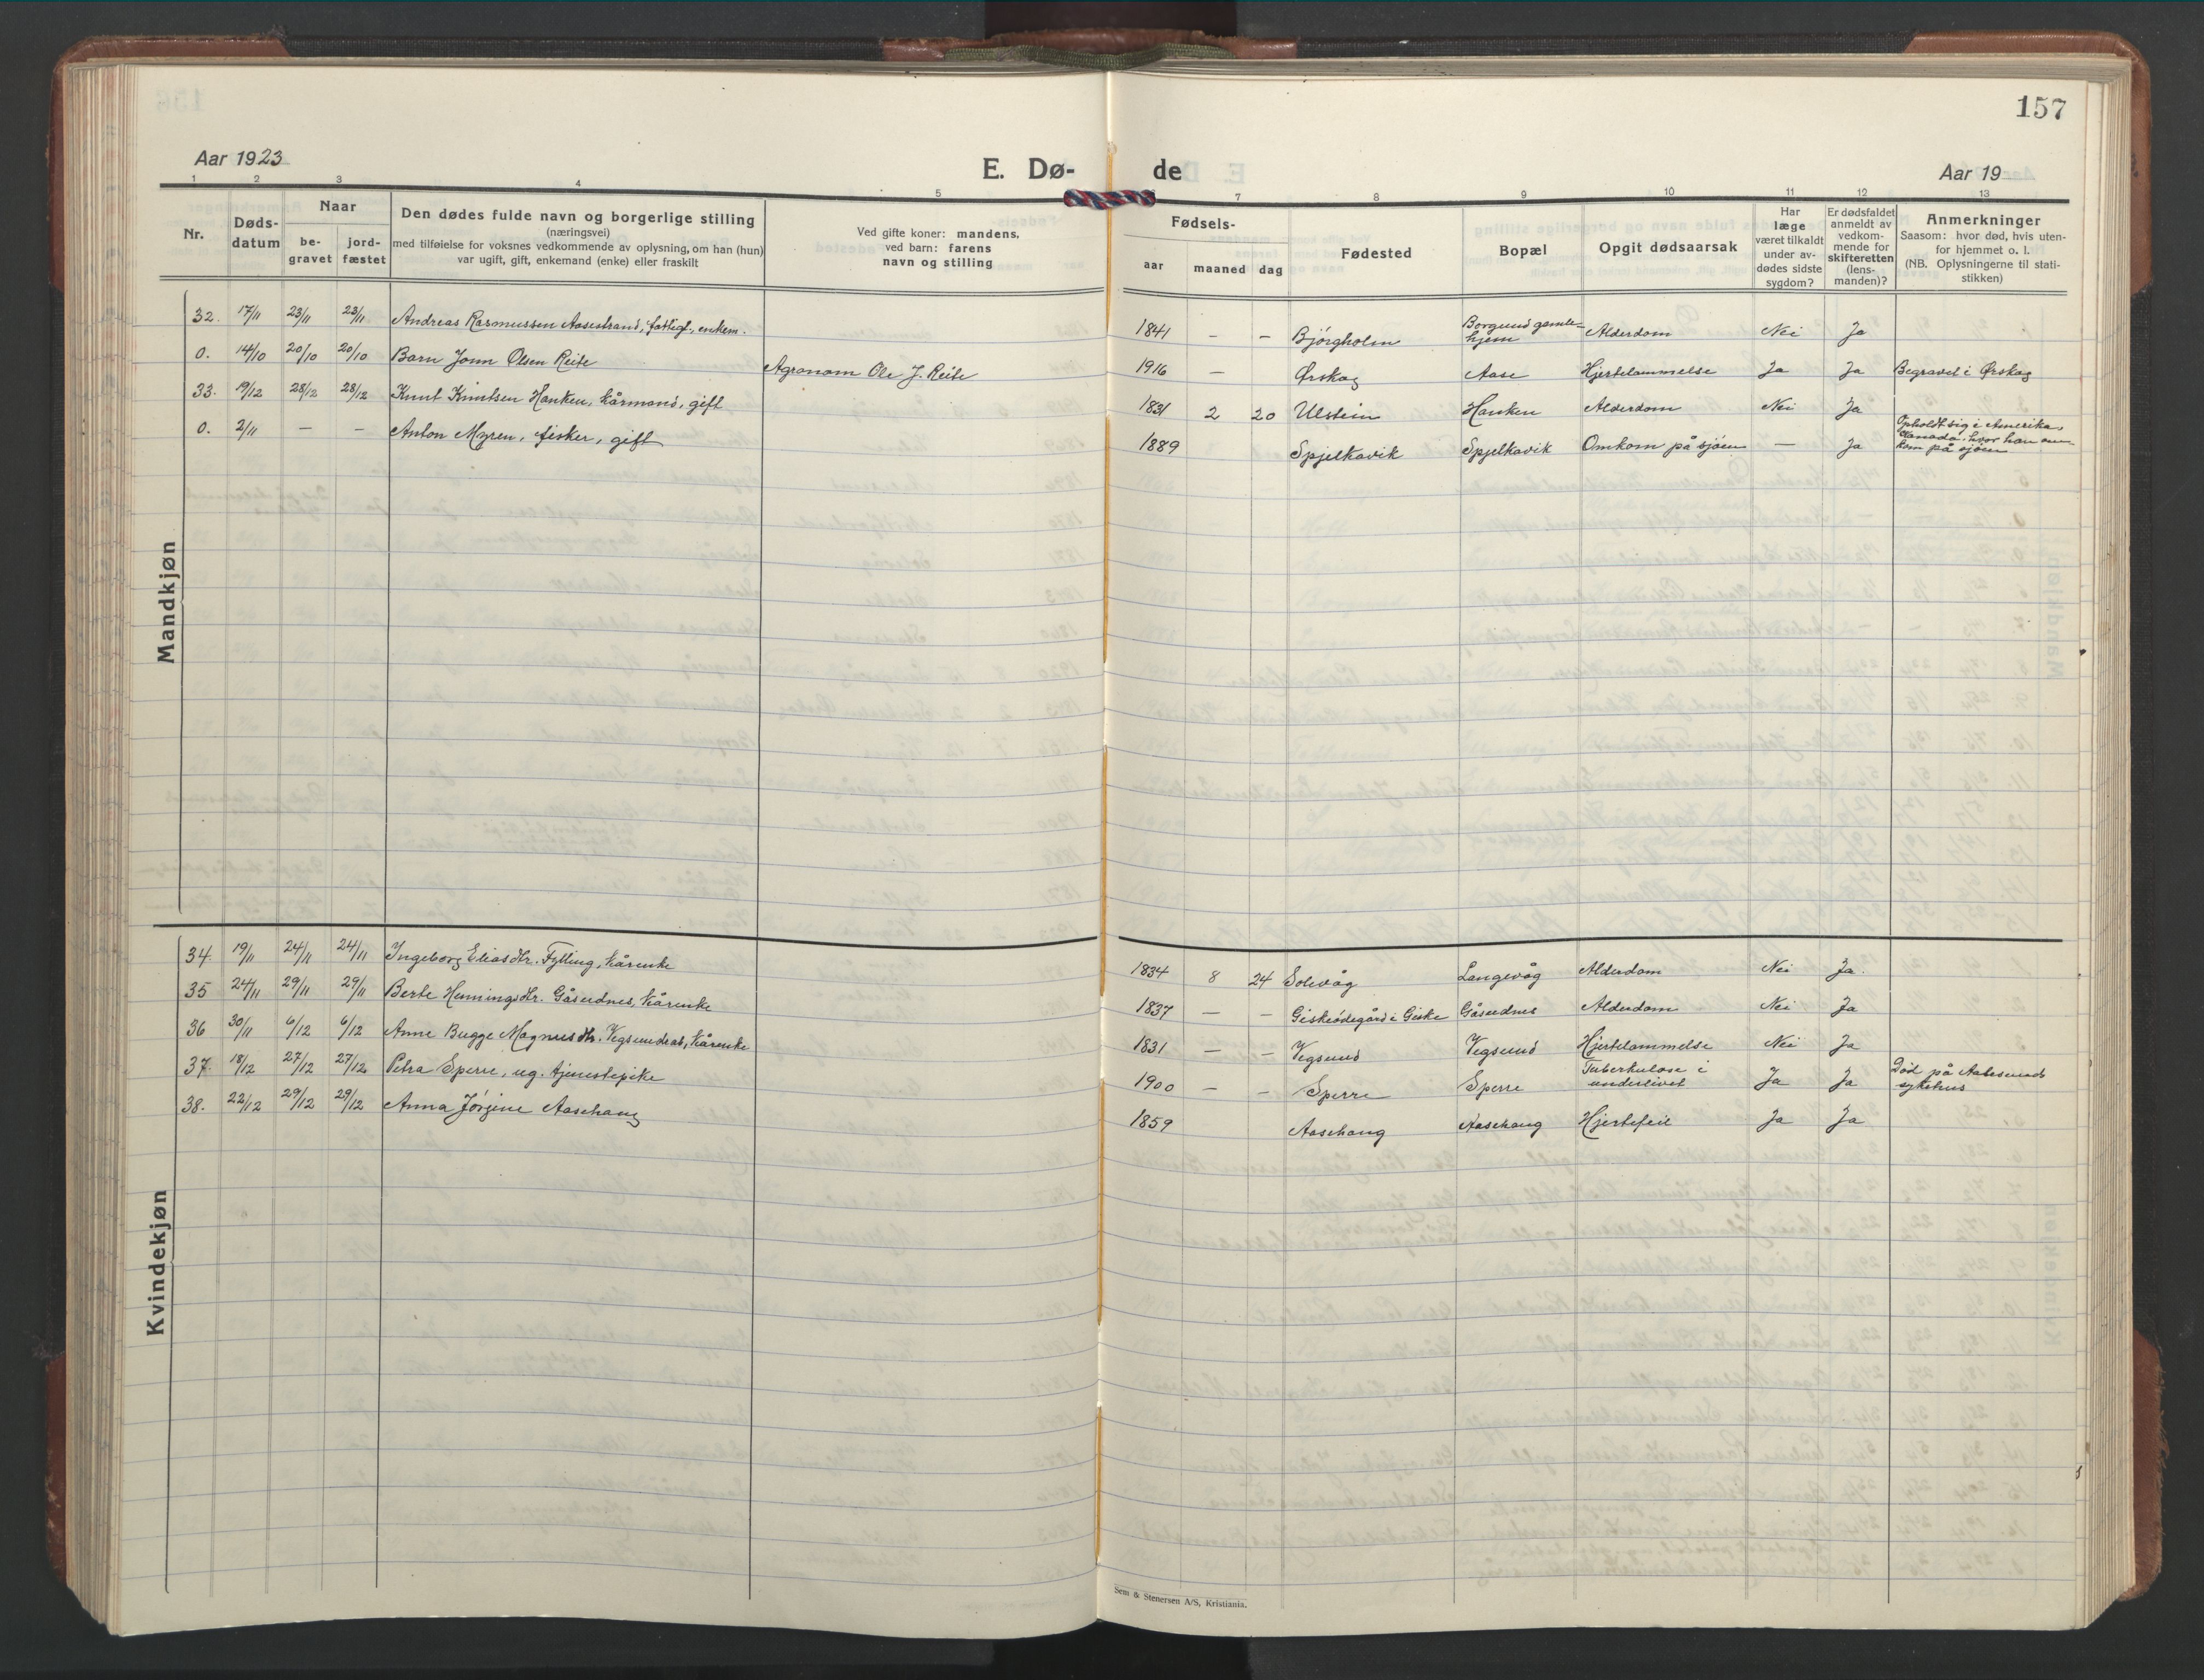 157
Aar 1923
E. Dø-
de
Aar 19
1 2 3 4 5 7 8 9 10 11 12 13
Nr.
Døds-
datum
Naar
be-
gravet
jord-
fæstet
Den dødes fulde navn og borgerlige stilling
(næringsvei)
med tilføielse for voksnes vedkommende av oplysning, om han (hun)
var ugift, gift, enkemand (enke) eller fraskilt
Ved gifte koner: mandens,
ved barn: farens
navn og stilling
Fødsels-
aar
maaned
dag
Fødested
Bopæl
Opgit dødsaarsak
Har
læge
været tilkaldt
under av-
dødes sidste
sygdom?
Er dødsfaldet
anmeldt av
vedkom-
mende for
skifteretten
(lens-
manden)?
Anmerkninger
Saasom: hvor død, hvis uten-
for hjemmet o. l.
(NB. Oplysningerne til stati-
stikken)
Mandkjøn
32. 17/11 23/11 23/11 Andreas Rasmussen Aasestrand, fattigf., enkem. 1841 – – Bjørgholm Borgund gamle-
hjem Alderdom Nei Ja
0. 14/10 20/10 20/10 Barn Jonn Olsen Reite Agronom Ole J. Reite 1916 – Ørskog Aase Hjertelammelse Ja Ja Begravet i Ørskog
33. 19/12 28/12 28/12 Knut Knutsen Hanken, kårmand, gift 1831 2 20 Ulstein Hanken Alderdom Nei Ja
0. 2/11 – – Anton Myren, fisker, gift 1889 Spjelkavik Spjelkavik Omkom på sjøen – Ja Opholdt sig i Amerika,
Kanada, hvor han om-
kom på sjøen
Kvindekjøn
34. 19/11 24/11 24/11 Ingeborg Eliasdtr. Fylling, kårenke 1834 8 24 Solevåg Langevåg Alderdom Nei Ja.
35 24/11 29/11 29/11 Berte Henningsdtr. Gåseidnes, kårenke 1837 – – Giskeødegård i Giske Gåseidnes Alderdom Nei Ja
36 30/11 6/12 6/12 Anne Bugge Magnusdtr. Vegsundras, kårenke 1831 – – Vegsund Vegsund Hjertelammelse Nei Ja
37. 18/12 27/12 27/12 Petra Sperre, ug. tjenestepike 1900 – – Sperre Sperre Tuberkulose i
underlivet Ja Ja Død på Aalesunds
sykehus
38. 22/12 29/12 29/12 Anna Jørgine Aasehaug 1859 Aasehaug Aasehaug Hjertefeil Ja Ja
Sem & Stenersen A/S, Kristiania.